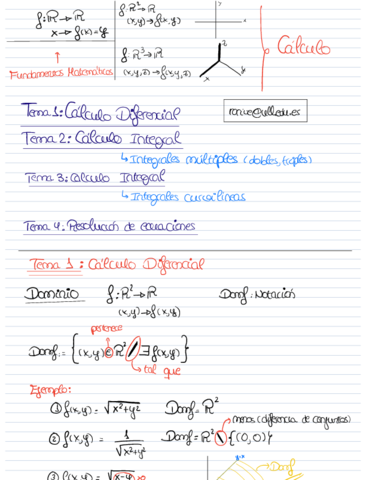 f: ℝ → ℝ
x → f(x) = y
f: ℝ² → ℝ
(x,y) → f(x,y)
f: ℝ³ → ℝ
(x,y,z) → f(x,y,z)
z
x
y
Cálculo
Fundamentos Matemáticos
Tema 1: Cálculo Diferencial
Tema 2: Cálculo Integral
↳ Integrales múltiples (dobles, triples)
Tema 3: Cálculo Integral
↳ Integrales curvilíneas
Tema 4: Resolución de ecuaciones
Tema 1: Cálculo Diferencial
Dominio f: ℝ² → ℝ Domf: Notación
(x,y) → f(x,y)
pertenece
Domf := {(x,y) ∈ ℝ² / ∃ f(x,y)}
tal que
Ejemplo:
① f(x,y) = √x²+y² Domf = ℝ²
menos (diferencia de conjuntos)
② f(x,y) = 1/√x²+y² Domf = ℝ² \ {(0,0)}
③ f(x,y) = √x-y
Domf